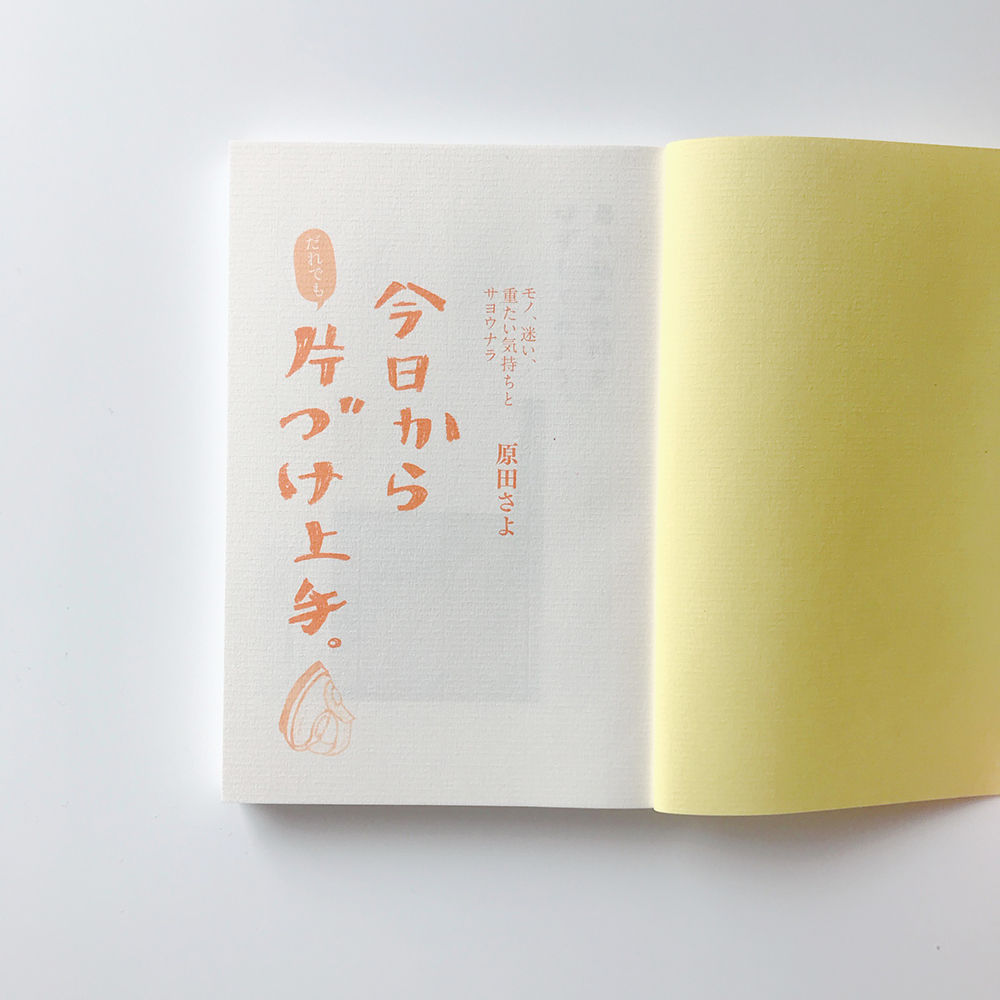 モノ、迷い、
重たい気持ちと
サヨウナラ
原田さよ
今日から
だれでも
片づけ上手。